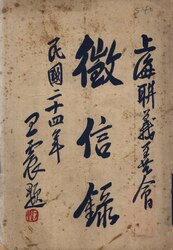 上海聯義善會
徵信錄
民國二十四年
王震題